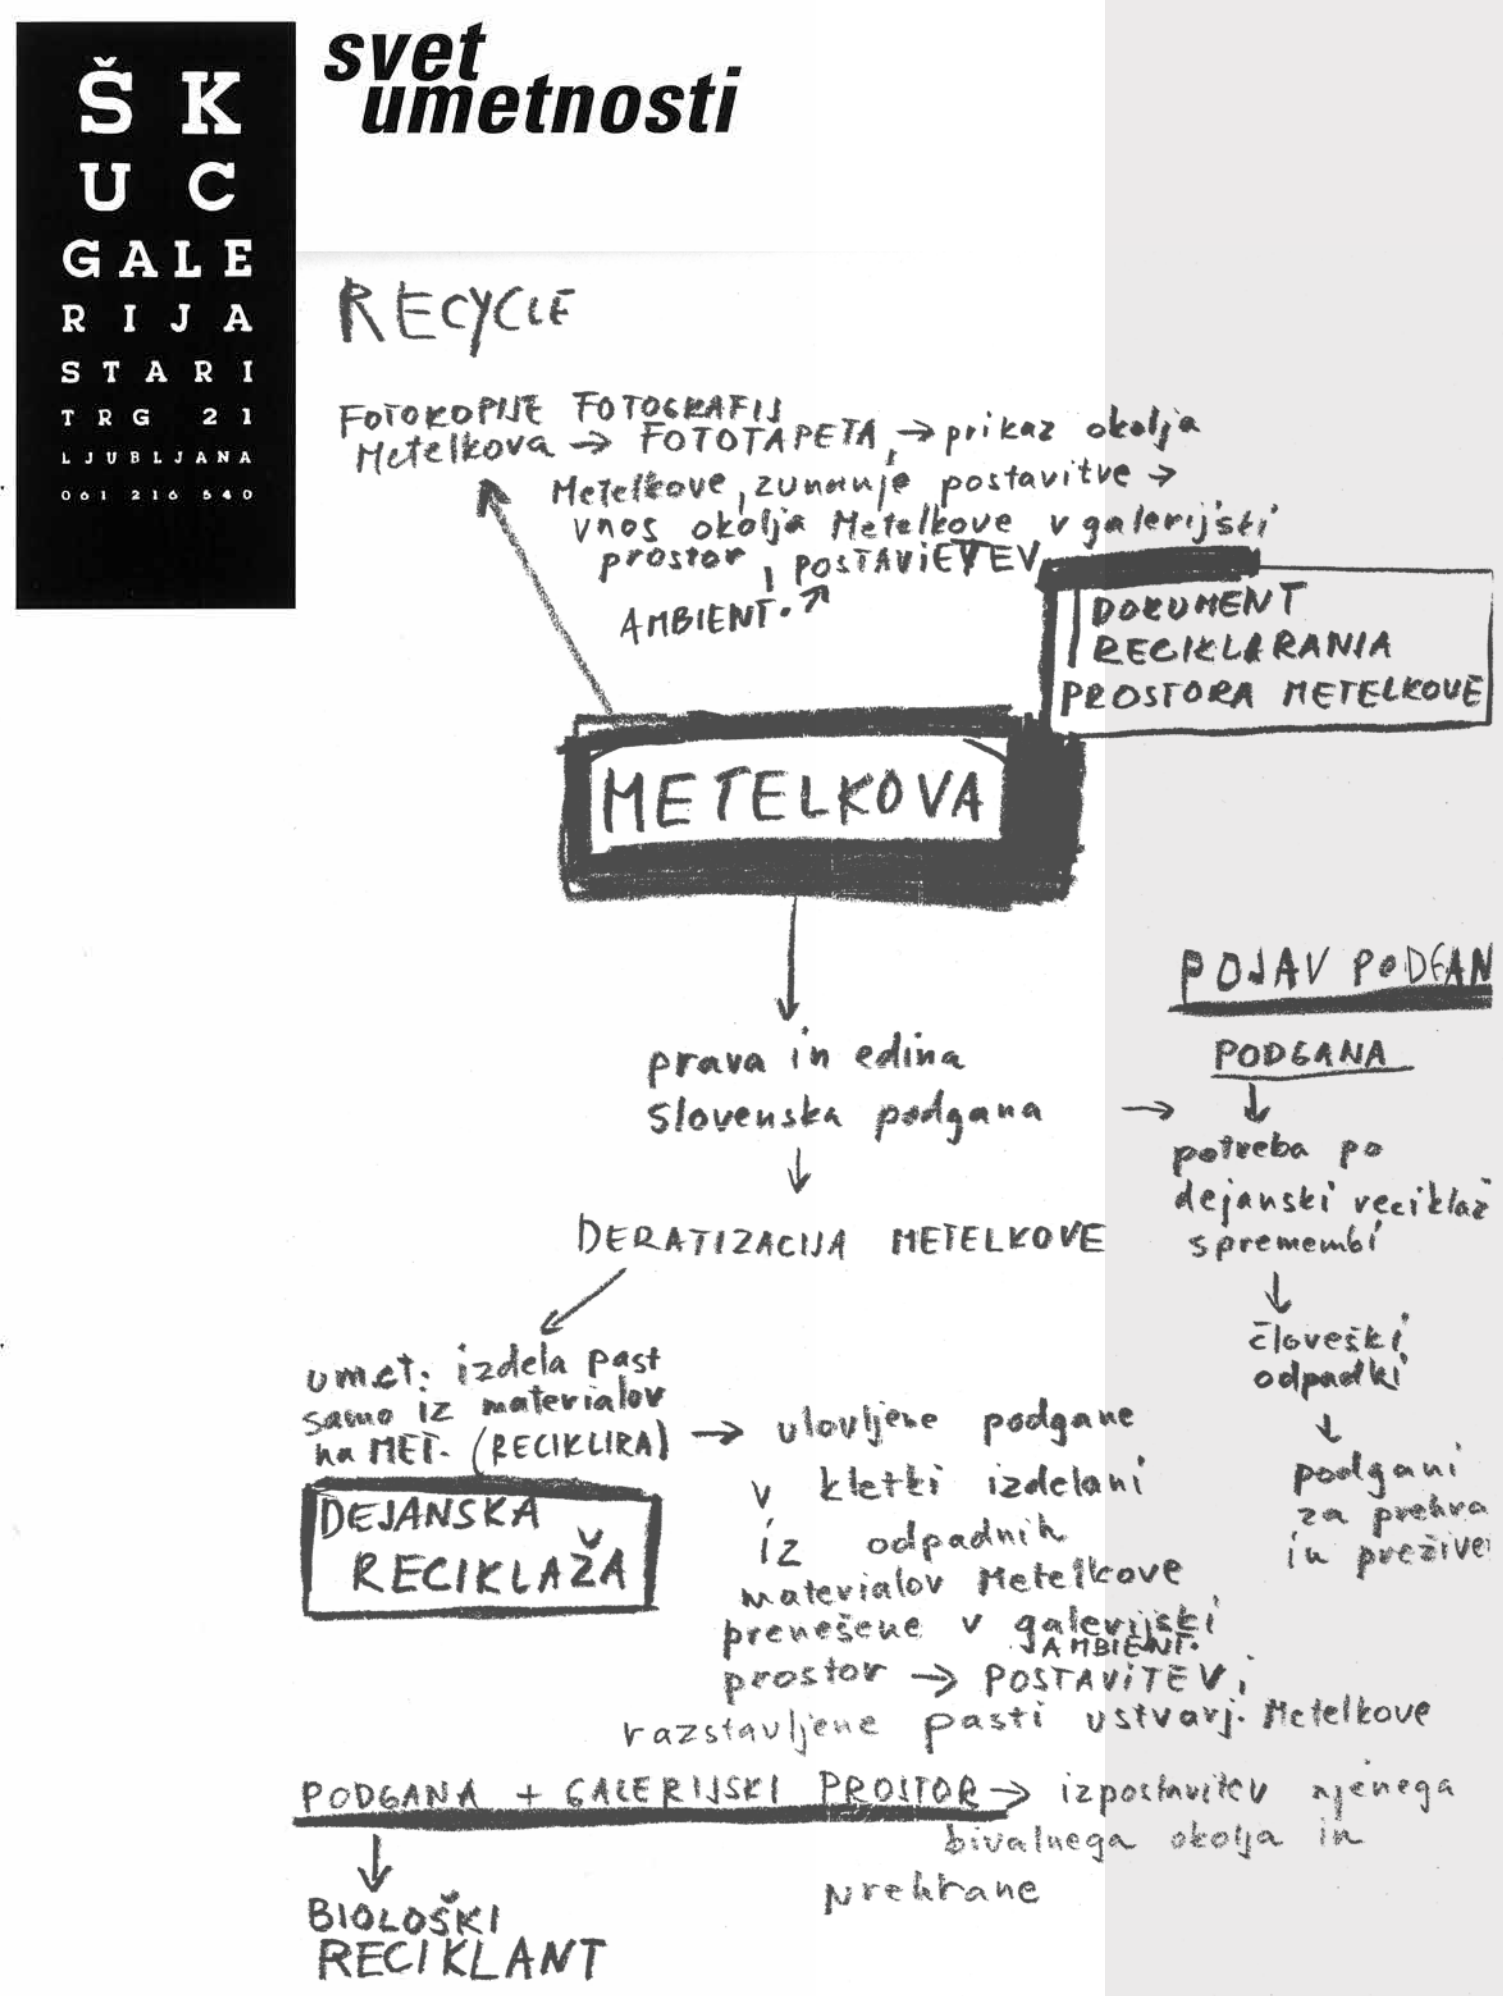 Š K
U C
GALE
RIJA
STARI
TRG 21
LJUBLJANA
061 216 540
svet
umetnosti
RECYCLE
FOTOKOPIJE FOTOGRAFIJ
Metelkova → FOTOTAPETA, → prikaz okolja
Metelkove, zunanje postavitve →
vnos okolja Metelkove v galerijski
prostor, POSTAVITEV
AMBIENT. ↗
DOKUMENT
RECIKLARANJA
PROSTORA METELKOVE
METELKOVA
prava in edina
slovenska podgana →
↓
DERATIZACIJA METELKOVE
POJAV PODGAN
PODGANA
↓
potreba po
dejanski reciklaž
spremembi
↓
človeški
odpadki
↓
podgani
za prehra
in prežive
umet. izdela past
samo iz materialov
na MET. (RECIKLIRA) →
DEJANSKA
RECIKLAŽA
ulovljene podgane
v kletki izdelani
iz odpadnih
materialov Metelkove
prenešene v galerijski
AMBIENT.
prostor → POSTAVITEV;
razstavljene pasti ustvarj. Metelkove
PODGANA + GALERIJSKI PROSTOR → izpostavitev njenega
bivalnega okolja in
prehrane
↓
BIOLOŠKI
RECIKLANT